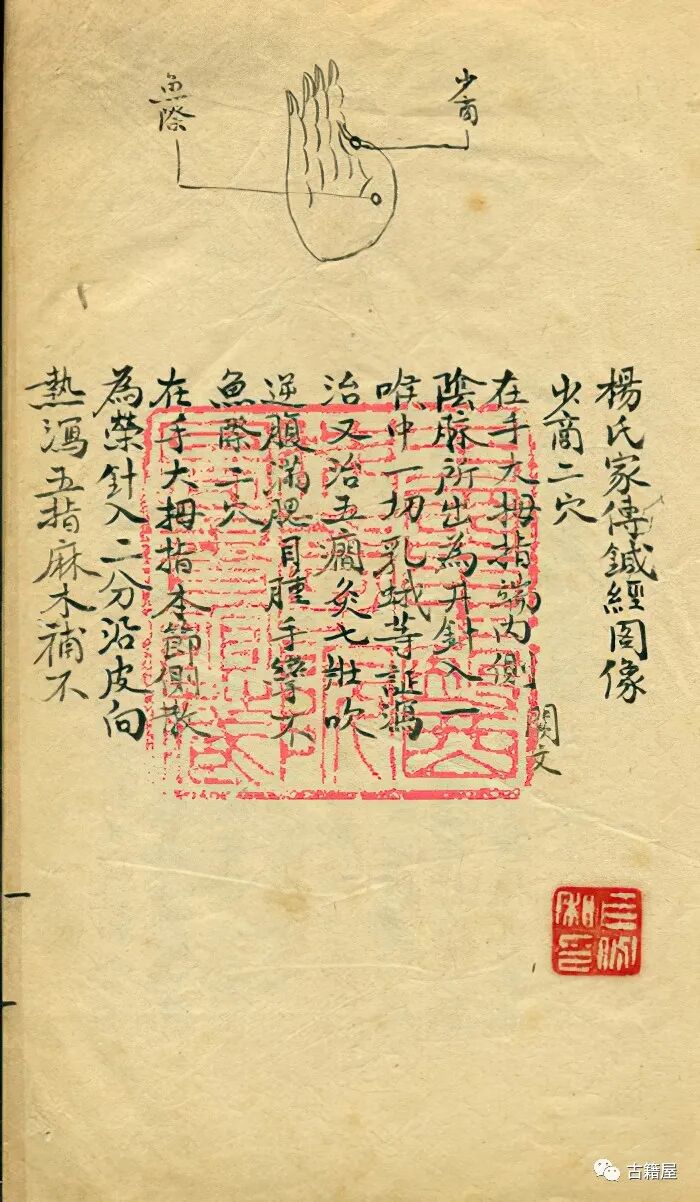 少商
魚際
楊氏家傳鍼經图像
少商二穴
在手大拇指端內側
闕文
陰脉所出為井針入一
喉中一切乳蛾等証瀉
治又治五癇灸七壯吹
逆腹滿肥目腫手孿不
魚際二穴
在手大拇指本節側散
為滎針入二分沿皮向
熱瀉五指麻木補不
古籍屋